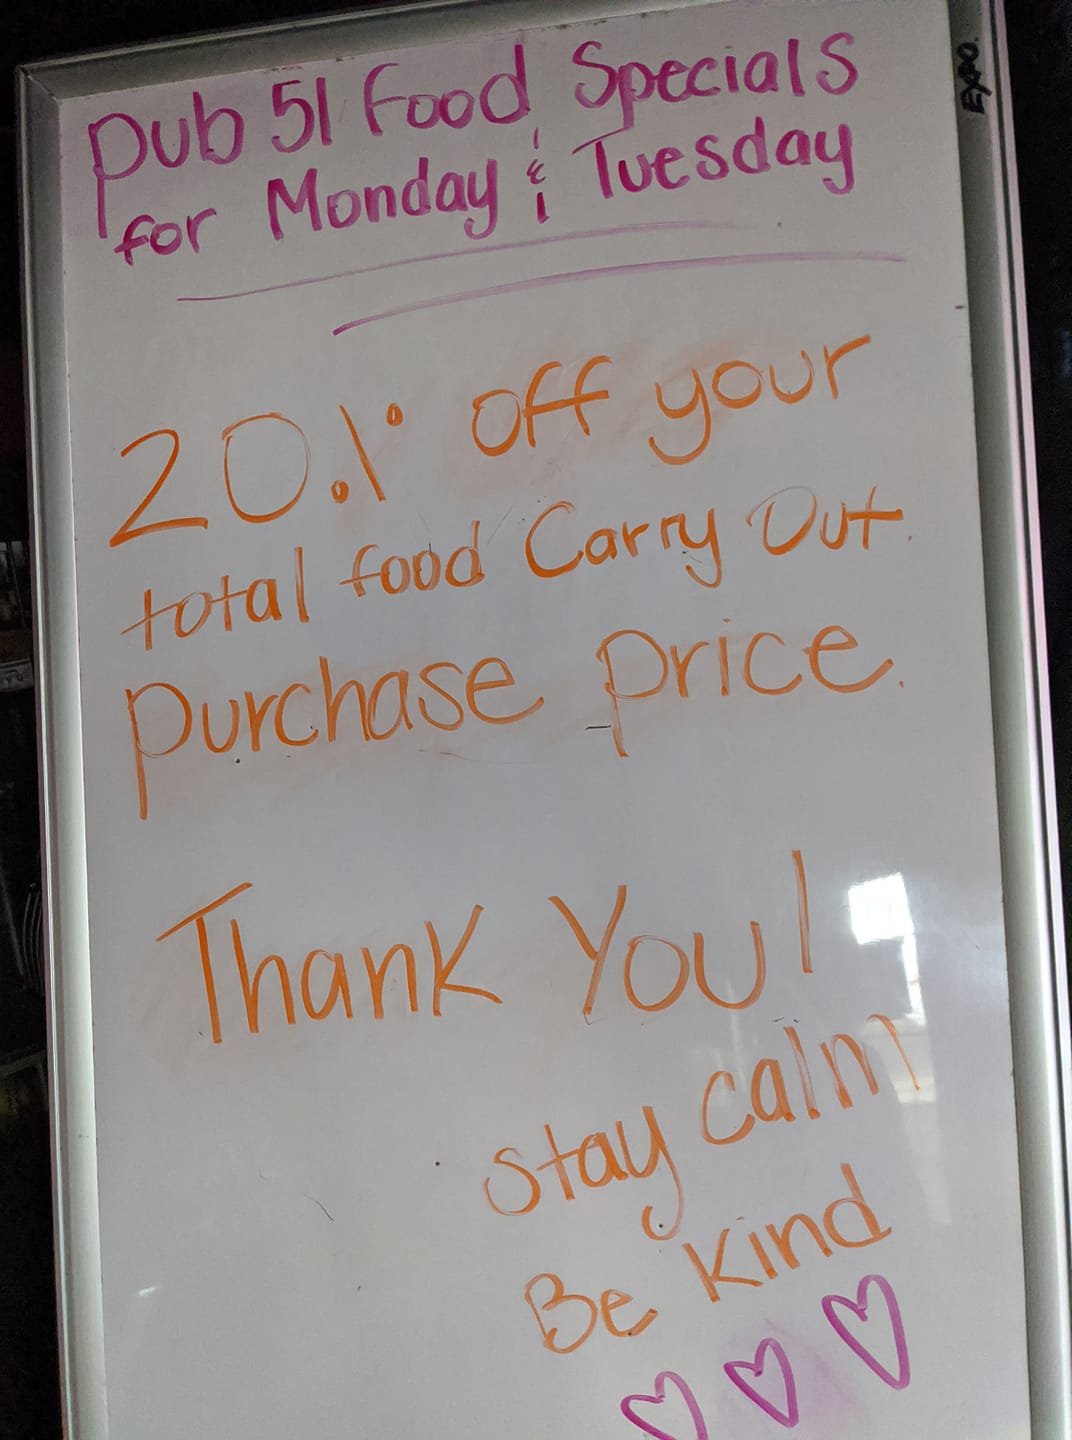 Pub 51 Food Specials
for Monday & Tuesday
20% off your
total food Carry Out
purchase price.
Thank You!
stay calm
Be kind
EXPO